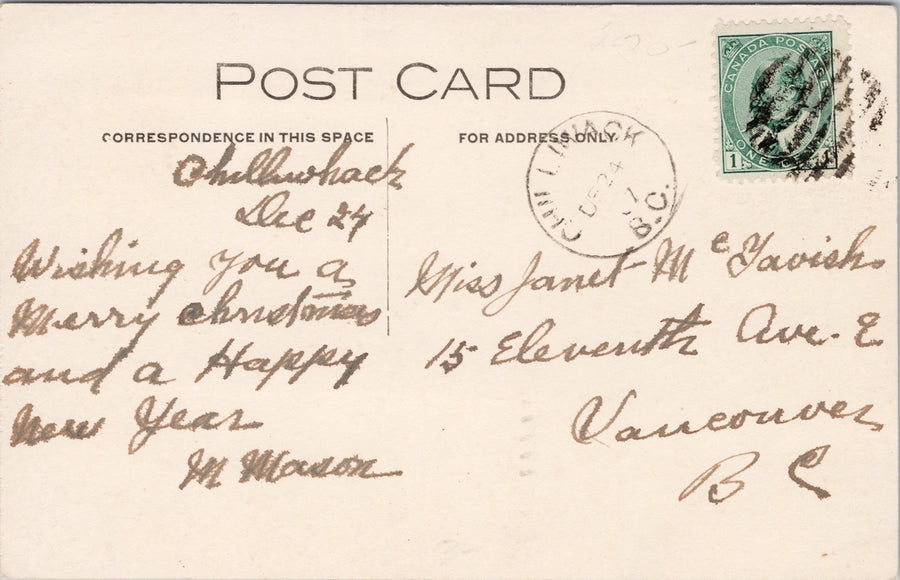 POST CARD
CORRESPONDENCE IN THIS SPACE
FOR ADDRESS ONLY.
CANADA POSTAGE
1
ONE
CHILLIWACK
DE 24
B.C.
Chilliwhack
Dec 24
Wishing you a
Merry christmas
and a Happy
New Year
M Mason
Miss Janet McTavish
15 Eleventh Ave. E
Vancouver
B C